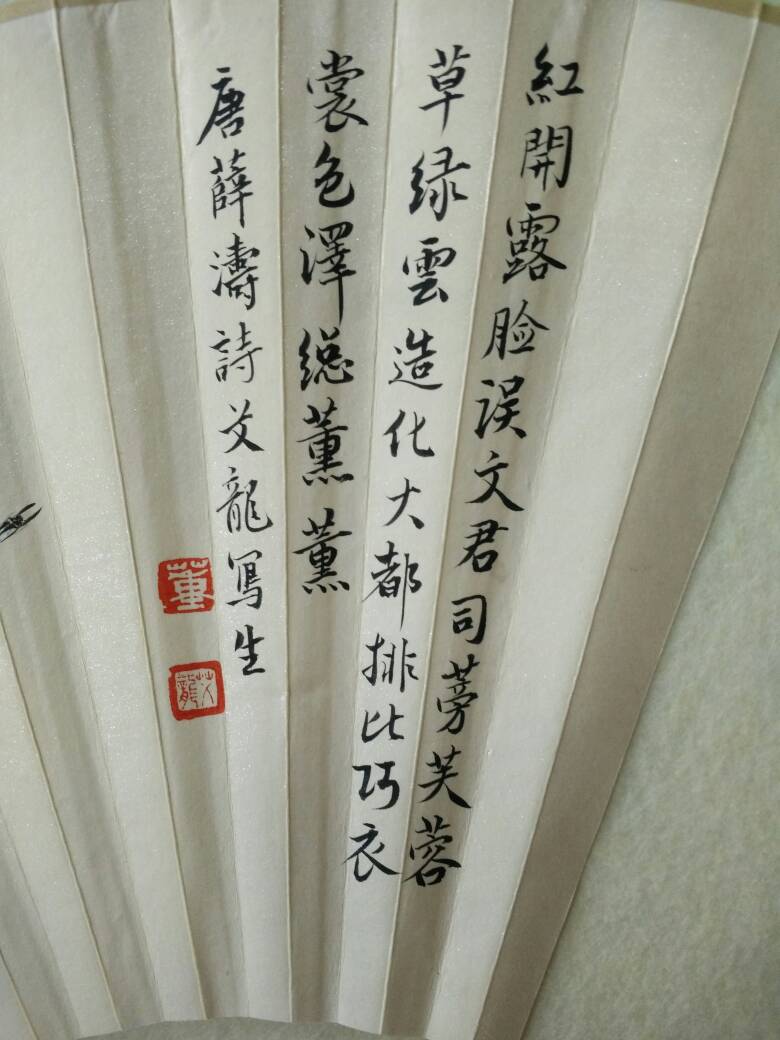 紅開露脸误文君司蒡芙蓉
草绿雲造化大都排比巧衣
裳色澤總薰薰
唐薛濤詩艾龍寫生
董
艾龍